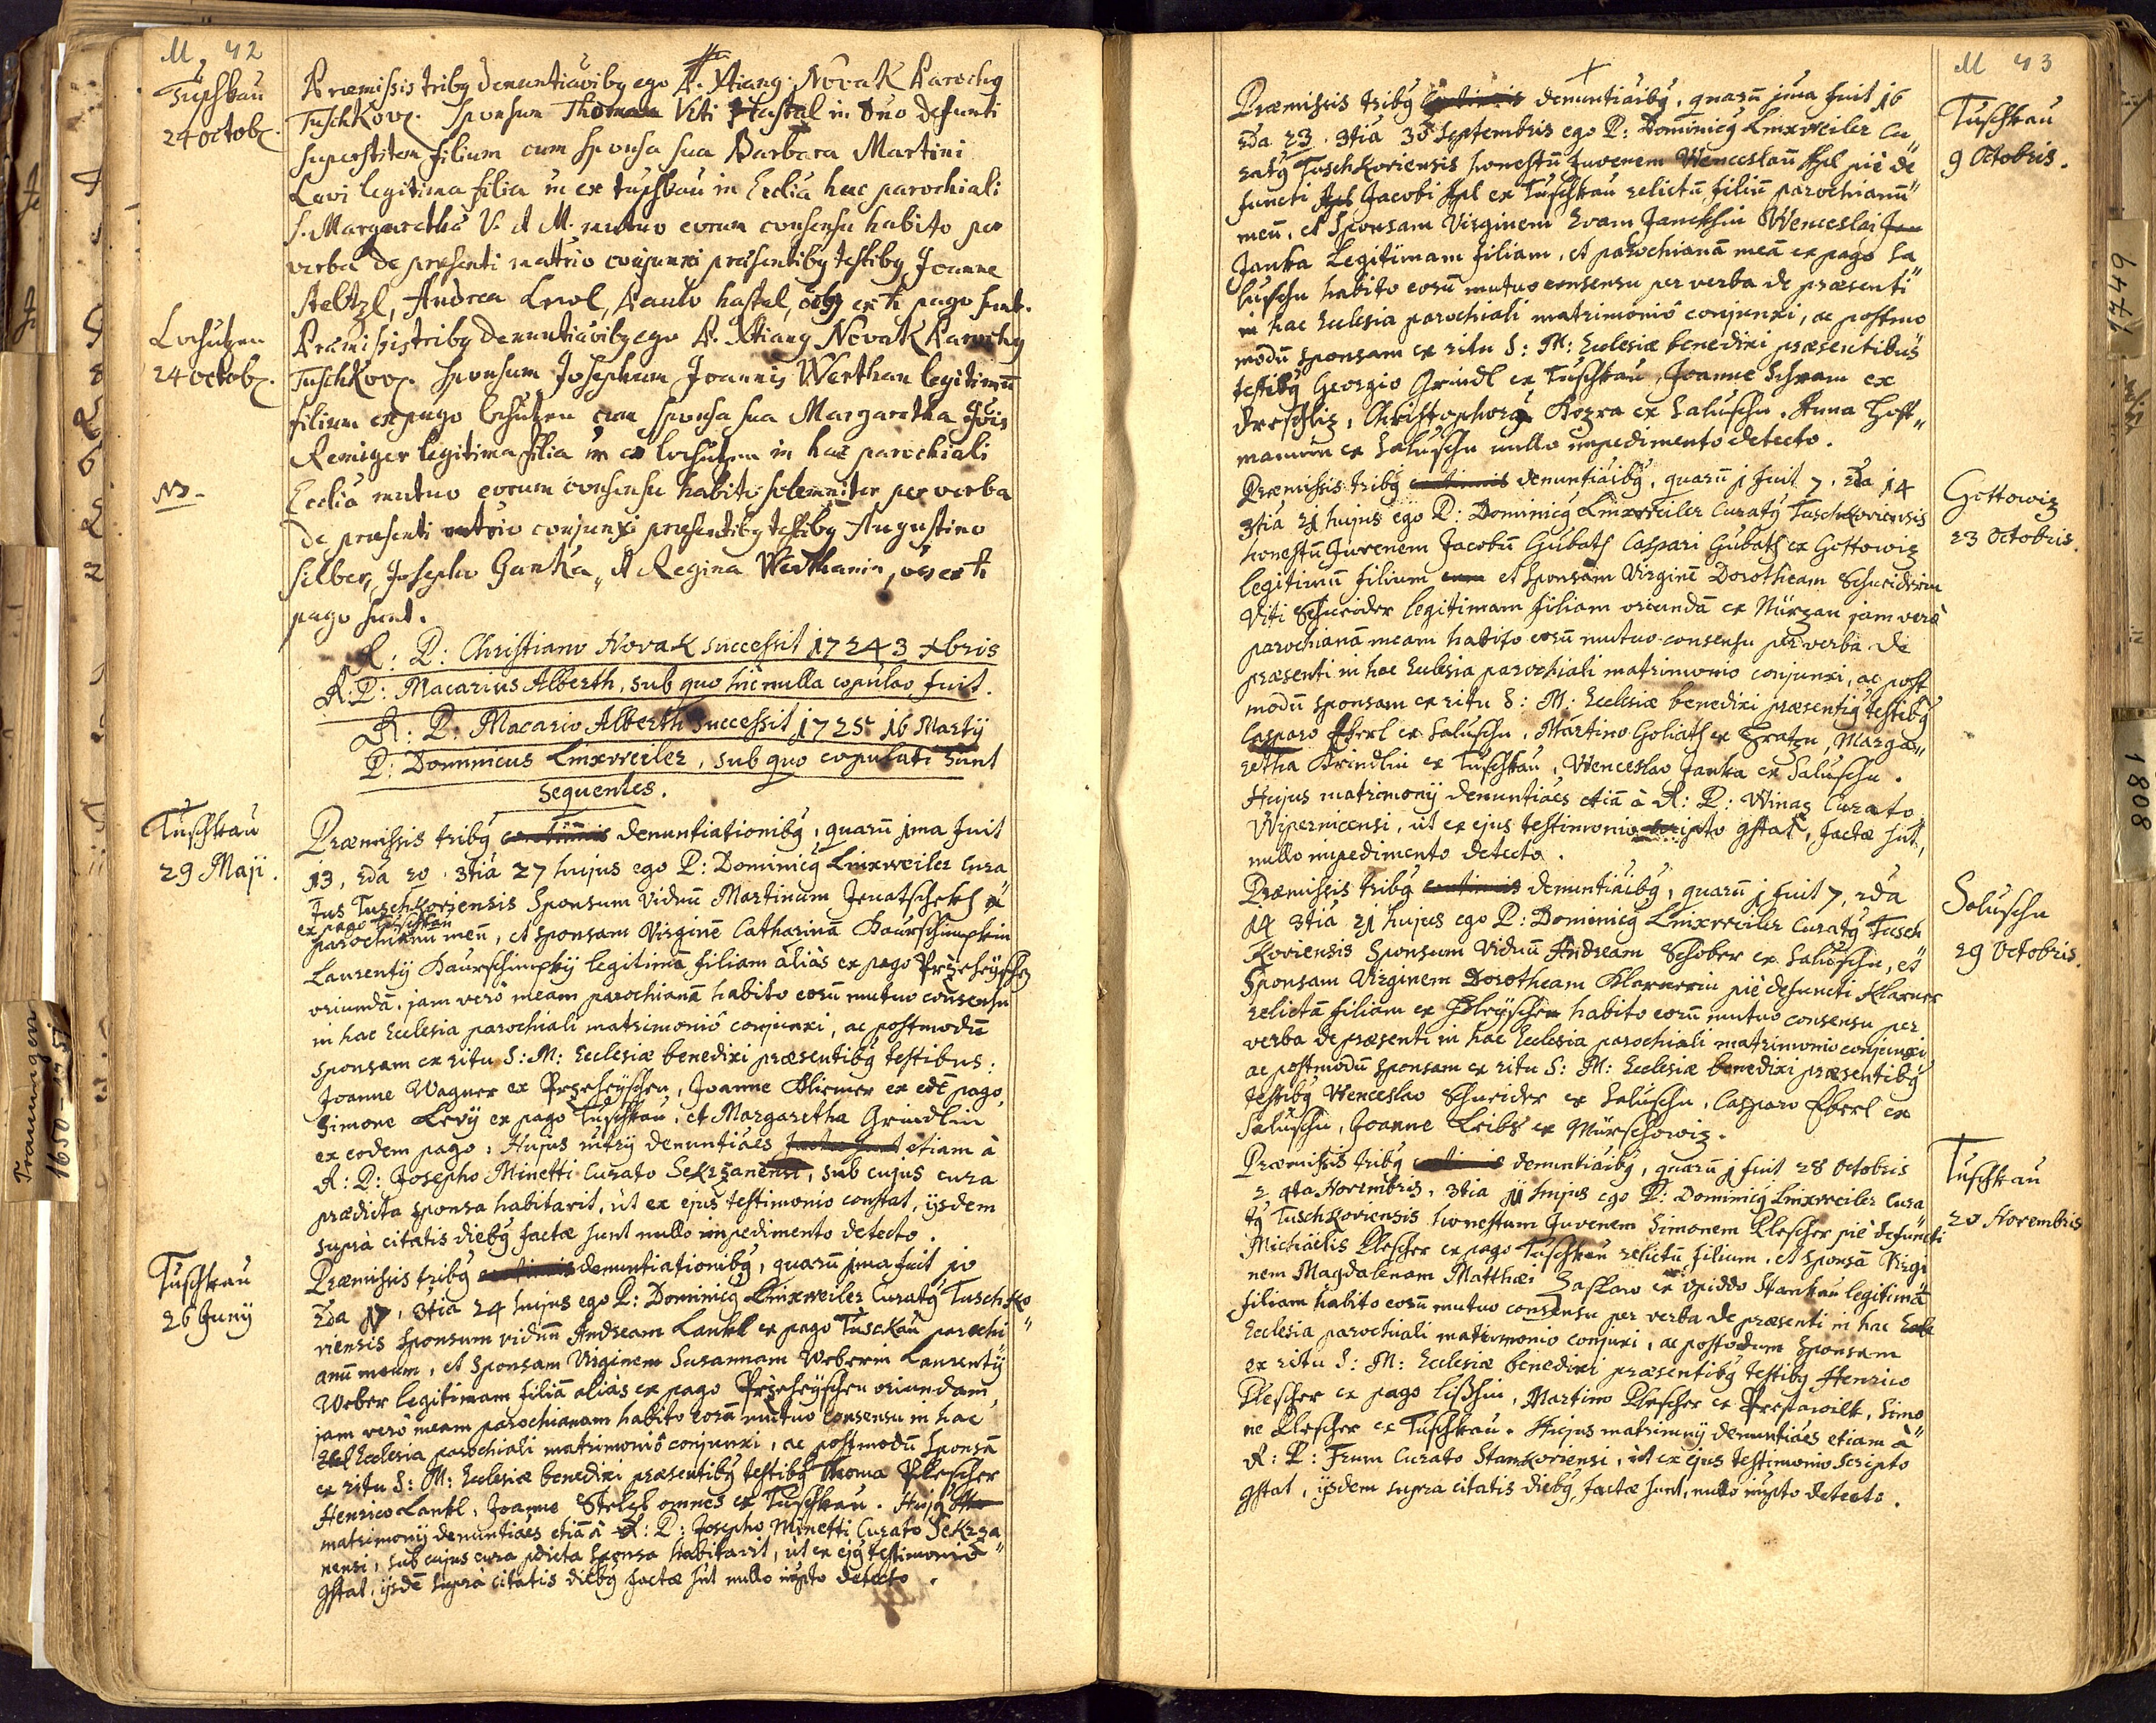 M 42
Tuschkau
24 octob.
Præmissis tribg denuntiaoibg ego P. Xtiang Novak Parochg
Tuschkov. sponsum Thomam Viti Hastal in Dno defunti
superstitem filium cum sponsa sua Barbara Martini
Levi legitima filia ex Tuschkau in Ecclia hac parochiali
S. Margarethæ V. et M. mutuo eorum consensu habito per
verba de præsenti matrio conjunxi præsentibg testibg Joanne
Steltzl, Andrea Lewl, Paulo hastal, ex pago sunt.
Lochutzen
24 octob.
Præmissis tribg denuntiaoibg ego P. Xtiang Novak Parochg
Tuschkov. sponsum Josephum Joannis Werthan legitimū
filium ex pago lochutzen cum sponsa sua Margaretha
Remiger legitima filia ex lochutzen in hac parochiali
NB.
Ecclia mutuo eorum consensu habito solemniter per verba
de præsenti matrio conjunxi præsentibg testibg Augustino
Silber, Josepho Ganka, et Regina Werthanin,
pago sunt.
R: P: Christiano Novak successit 1724 3 Xbris
R. P: Macarius Alberth, sub quo hic nulla copulao fuit.
R: P: Macario Alberth successit 1725 16 Martÿ
P: Dominicus Linxweiler, sub quo copulati sunt
sequentes.
Tuschkau
29 Maji.
Præmissis tribg denuntiationibg, quarū 1ma fuit
13, 2da 20. 3tia 27 hujus ego P: Dominicg Linxweiler Cura
tus Tuschkoviensis Sponsum Viduū Martinum Jenatschekh
ex pago Tuschkau
parochianū meū, et sponsam Virginē Catharinā Baurschimpkin
Laurentÿ Baurschimpkÿ legitimā filiam aliàs ex pago Przeheÿschen
oriundā, jam verò meam parochianā habito eorū mutuo consensu
in hac Ecclesia parochiali matrimoniô conjunxi, ac postmodū
sponsam ex ritu S: M: Ecclesiæ benedixi præsentibg testibus:
Joanne Wagner ex Przeheÿschen, Joanne Kliemer ex eodē pago,
Simone Levÿ ex pago Tuschkau, et Margaretha Grindlin
ex eodem pago. Hujus mtrÿ denuntiaēs etiam à
R: P: Josepho Minetti Curato Sekrzanensi, sub cujus cura
prædicta sponsa habitavit, ut ex ejus testimonio constat, ijsdem
suprà citatis diebg factæ sunt nullo impedimento detecto.
Tuschkau
26 Junÿ
Præmissis tribg denuntiationibg, quarū 1ma fuit 10
2da 17, 3tia 24 hujus ego P: Dominicg Linxweiler Curatg Tuschko
viensis sponsum viduū Andream Lankl ex pago Tuschkau parochi
anū meum, et sponsam Virginem Susannam Weberin Laurentÿ
Weber legitimam filiā aliàs ex pago Przeheÿschen oriundam,
jam verò meam parochianam habito eorū mutuo consensu in hac
Ecclesia parochiali matrimoniô conjunxi, ac postmodū sponsā
ex ritu S: M: Ecclesiæ benedixi præsentibg testibg Thoma Plescher
Henrico Lankl, Joanne Stelzl omnes ex Tuschkau. Hujg
matrimonÿ denuntiaēs etiā à R: P: Josepho Minetti Curato Sekrza
nensi, sub cujus cura pdicta sponsa habitavit, ut ex ejg testimoniô
gstat, ijsdē suprà citatis diebg factæ sūt nullo impto detecto.
M 43
Tuschkau
9 Octobris.
Præmissis tribg denuntiaibg, quarū 1ma fuit 16
2da 23. 3tia 30 Septembris ego P: Dominicg Linxweiler Cu
ratg Tuschkoviensis honestū Juvenem Wenceslaū piè de
functi Jacobi ex Tuschkau relictū filiū parochianū
meū, et Sponsam Virginem Evam Janckhin Wenceslai
Janka Legitimam filiam, et parochianā meā ex pago Sa
luschen habito eorū mutuo consensu per verba de præsenti
in hac Ecclesia parochiali matrimoniô conjunxi, ac postmo
modū sponsam ex ritu S: M: Ecclesiæ benedixi præsentibus
testibg Georgio Grindl ex Tuschkau, Joanne Schram ex
Dreschliz, Christophoro Kozra ex Saluschen. Anna Hoff
manin ex Saluschen nullo impedimento detecto.
Gottowiz
23 Octobris.
Præmissis tribg denuntiaibg, quarū 1 fuit 7. 2da 14
3tia 21 hujus ego P: Dominicg Linxweiler Curatg Tuschkoviensis
honestū Juvenem Jacobū Gubath Caspari Gubath ex Gottowiz
legitimū filium et sponsam Virginē Dorotheam Schneiderin
Viti Schneider legitimam filiam oriundā ex Nürzan jam verò
parochianā meam habito eorū mutuo consensu per verba de
præsenti in hac Ecclesia parochiali matrimonio conjunxi, ac post
modū sponsam ex ritu S: M: Ecclesiæ benedixi præsentig testibg
Casparo Eberl ex Saluschen, Martino Goliath ex Gratzn, Marga
retha Grindlin ex Tuschkau, Wenceslao Janka ex Saluschen.
Hujus matrimonÿ denuntiaēs etiā à R: P: Winaz Curato
Wipernicensi, ut ex ejus testimonio scripto gstat, factæ sūt,
nullo impedimento detecto.
Soluschen
29 Octobris.
Præmissis tribg denuntiaibg, quarū 1 fuit 7, 2da
14 3tia 21 hujus ego P: Dominicg Linxweiler Curatg Tusch
koviensis Sponsum Viduū Andream Schober ex Saluschen, et
Sponsam Virginem Dorotheam Klarnerin piè defuncti Klarner
relictā filiam ex habito eorū mutuo consensu per
verba de præsenti in hac Ecclesia parochiali matrimonio conjunxi
ac postmodū sponsam ex ritu S: M: Ecclesiæ benedixi præsentibg
testibg Wenceslao Schneider ex Saluschen, Casparo Eberl ex
Saluschen, Joanne Leibs ex Mürschowiz.
Tuschkau
20 Novembris
Præmissis tribg denuntiaibg, quarū 1 fuit 28 Octobris
2 4ta Novembris, 3tia 11 hujus ego P: Dominicg Linxweiler Cura
tg Tuschkoviensis honestum Juvenem Simonem Plescher piè defuncti
Michaëlis Plescher ex pago Tuschkau relictū filium, et sponsā Virgi
nem Magdalenam Matthæi Saskaw ex opiddo Stankau legitimā
filiam habito eorū mutuo consensu per verba de præsenti in hac
Ecclesia parochiali matrimonio conjuxi, ac postodum Sponsam
ex ritu S: M: Ecclesiæ benedixi præsentibg testibg Henrico
Plescher ex pago lißhin, Martino Plescher ex Prepawilk, Simo
ne Plescher ex Tuschkau. Hujus matrimnÿ denuntiaēs etiam à
R: P: Frum Curato Stankoviensi, ut ex ejus testimonio scripto
gstat, ijsdem supra citatis diebg factæ sunt, nullo impto detecto.
Trauungen
1650-1757
1749
1808